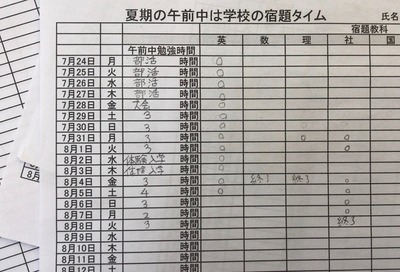 夏期の午前中は学校の宿題タイム
氏名
宿題教科
午前中勉強時間 英 数 理 社 国
7月24日 月 部活 時間 ○
7月25日 火 部活 時間 ○
7月26日 水 部活 時間 ○
7月27日 木 部活 時間 ○
7月28日 金 大会 時間 ○
7月29日 土 3 時間 ○
7月30日 日 3 時間 ○
7月31日 月 3 時間 ○ ○ ○
8月1日 火 3 時間 ○ ○
8月2日 水 体験入学 時間 ○
8月3日 木 体験入学 時間 ○
8月4日 金 3 時間 ○ 終了 終了 ○
8月5日 土 4 時間 ○ ○
8月6日 日 3 時間 ○
8月7日 月 2 時間 ○
8月8日 火 3 時間 終了
8月9日 水 時間
8月10日 木 時間
8月11日 金 時間
8月12日 土 時間